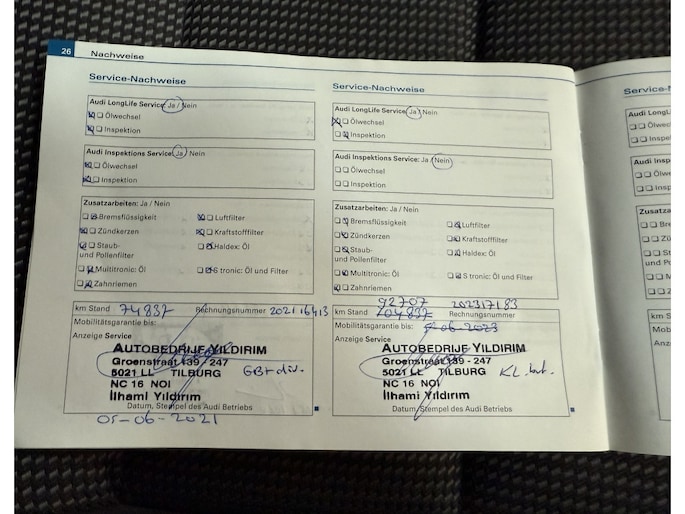 26 Nachweise
Service-Nachweise
Audi LongLife Service: Ja / Nein
Ölwechsel
Inspektion
Audi Inspektions Service: Ja / Nein
Ölwechsel
Inspektion
Zusatzarbeiten: Ja / Nein
Bremsflüssigkeit Luftfilter
Zündkerzen Kraftstofffilter
Staub- Haldex: Öl
und Pollenfilter
Multitronic: Öl S tronic: Öl und Filter
Zahnriemen
km Stand 74837 Rechnungsnummer 20216413
Mobilitätsgarantie bis:
Anzeige Service
AUTOBEDRIJF YILDIRIM
Groenstraat 139 - 247
5021 LL TILBURG
NC 16 NOI
Ilhami Yıldırım
Datum, Stempel des Audi Betriebs
05-06-2021
Service-Nachweise
Audi LongLife Service: Ja / Nein
Ölwechsel
Inspektion
Audi Inspektions Service: Ja / Nein
Ölwechsel
Inspektion
Zusatzarbeiten: Ja / Nein
Bremsflüssigkeit Luftfilter
Zündkerzen Kraftstofffilter
Staub- Haldex: Öl
und Pollenfilter
Multitronic: Öl S tronic: Öl und Filter
Zahnriemen
92707 202317183
km Stand Rechnungsnummer
Mobilitätsgarantie bis: 06-2023
Anzeige Service
AUTOBEDRIJF YILDIRIM
Groenstraat 139 - 247
5021 LL TILBURG KL.
NC 16 NOI
Ilhami Yıldırım
Datum, Stempel des Audi Betriebs
Service-N
Audi LongL
Ölwe
Inspe
Audi Insp
Ölw
Insp
Zusatza
Bre
Zü
St
und Po
M
Z
km S
Mob
Anz